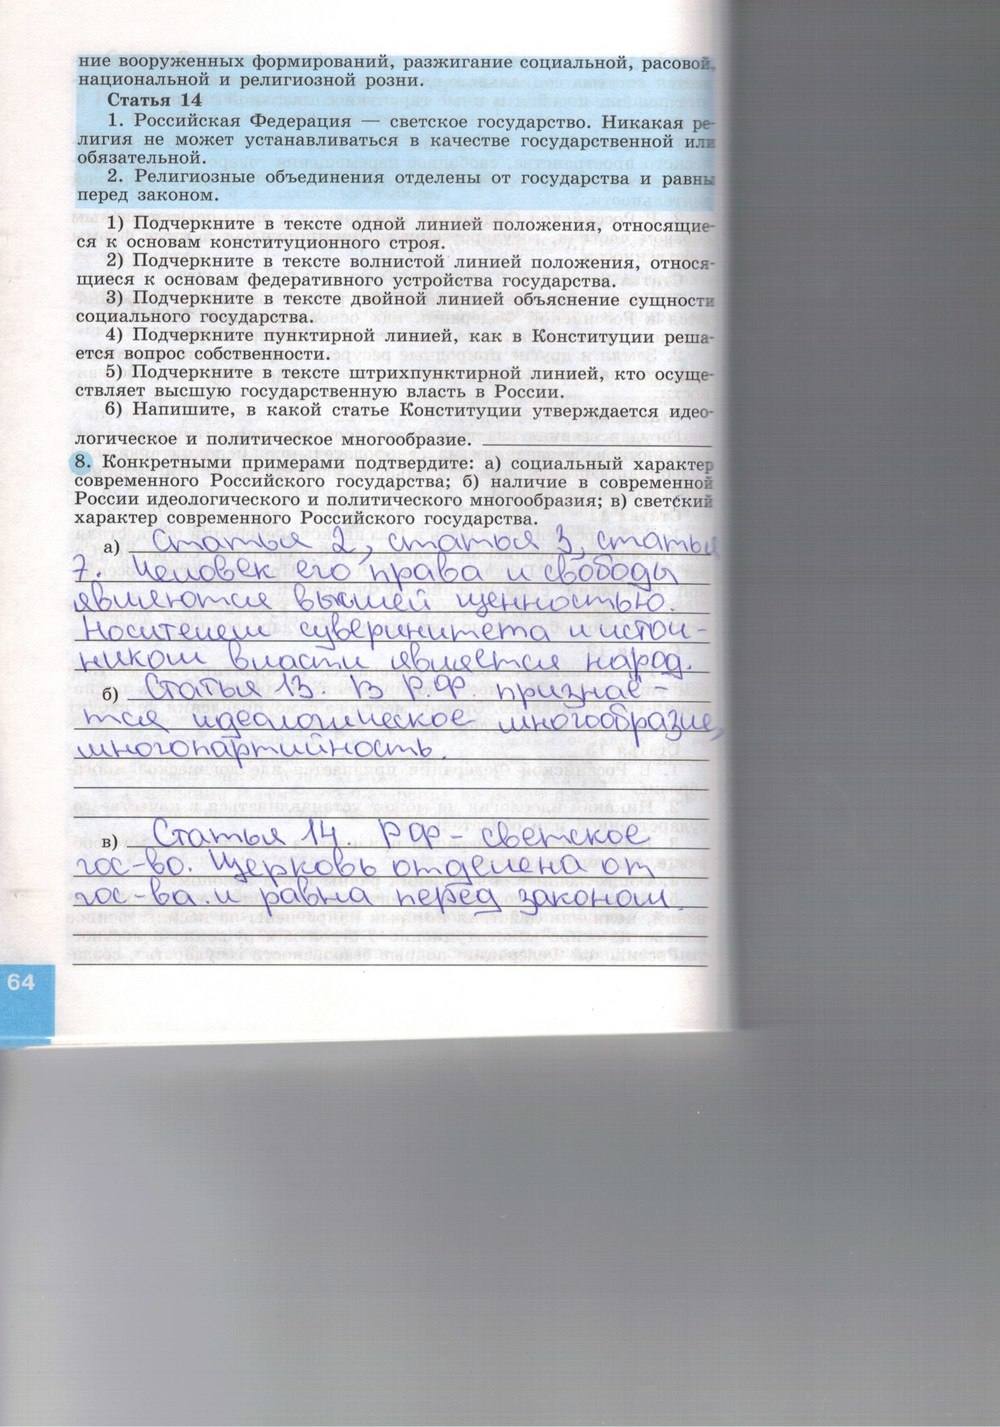 ние вооруженных формирований, разжигание социальной, расовой,
национальной и религиозной розни.
Статья 14
1. Российская Федерация — светское государство. Никакая ре-
лигия не может устанавливаться в качестве государственной или
обязательной.
2. Религиозные объединения отделены от государства и равны
перед законом.
1) Подчеркните в тексте одной линией положения, относящие-
ся к основам конституционного строя.
2) Подчеркните в тексте волнистой линией положения, относя-
щиеся к основам федеративного устройства государства.
3) Подчеркните в тексте двойной линией объяснение сущности
социального государства.
4) Подчеркните пунктирной линией, как в Конституции реша-
ется вопрос собственности.
5) Подчеркните в тексте штрихпунктирной линией, кто осуще-
ствляет высшую государственную власть в России.
6) Напишите, в какой статье Конституции утверждается идео-
логическое и политическое многообразие.
8. Конкретными примерами подтвердите: а) социальный характер
современного Российского государства; б) наличие в современной
России идеологического и политического многообразия; в) светский
характер современного Российского государства.
а) Статья 2, статья 3, статья
7. Человек его права и свободы
являются высшей ценностью.
Носителем суверинитета и источ-
ником власти является народ.
б) Статья 13. В Р.Ф. признае-
тся идеологическое многообразие,
многопартийность.
в) Статья 14. РФ - светское
гос-во. Церковь отделена от
гос-ва. и равна перед законом.
64